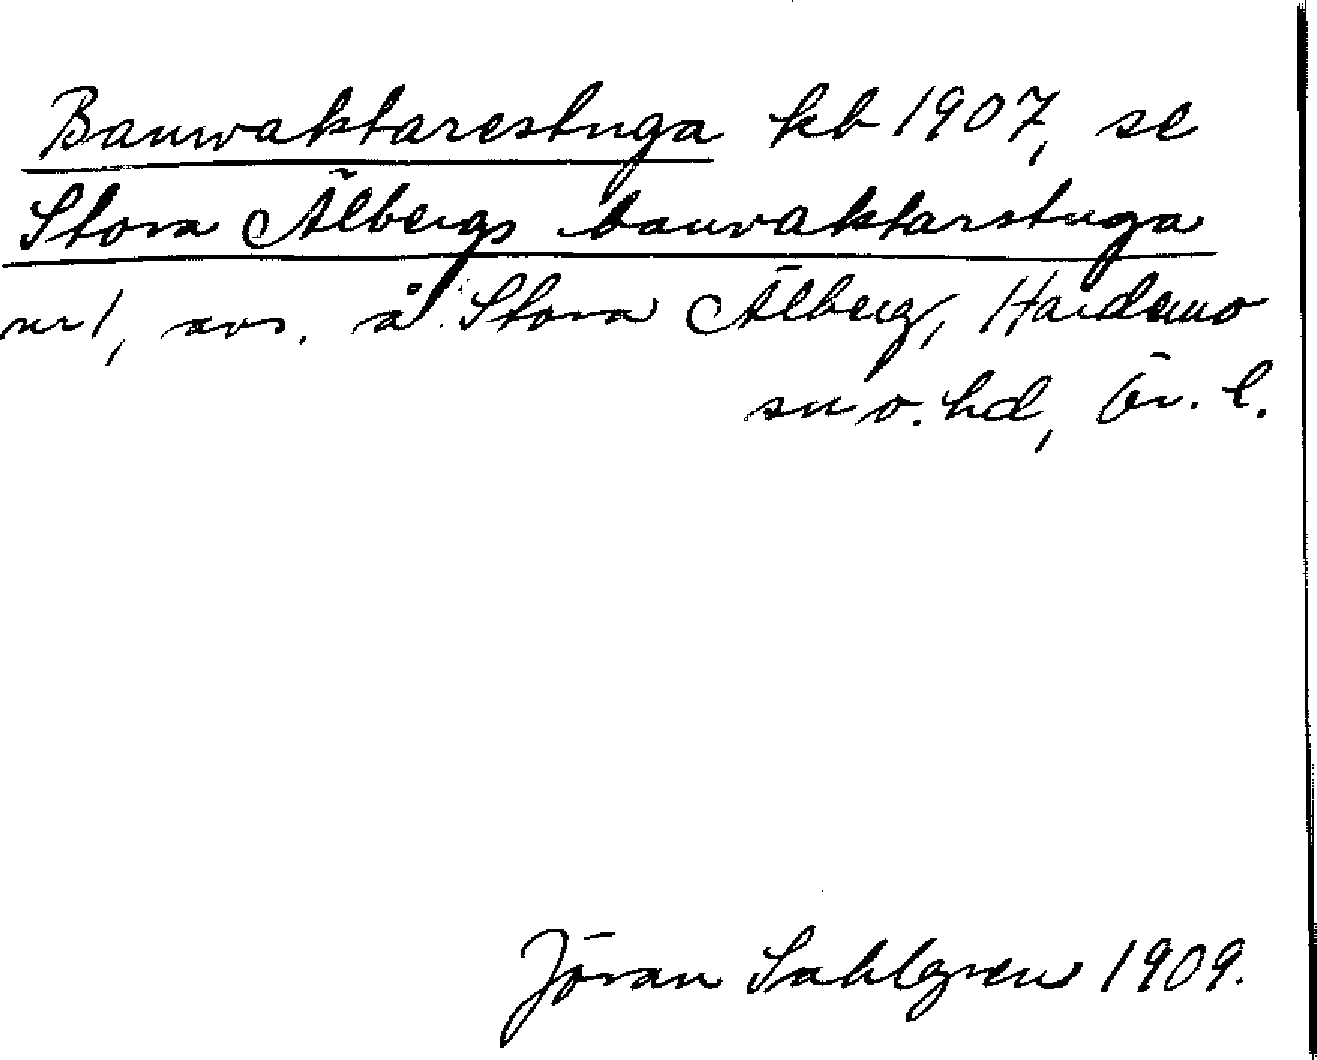 Banwaktarestuga kb 1907, se
Stora Älbergs banvaktarstuga
nr 1, avs. å Stora Älberg, Hardemo
sn o. hd, Ör. l.
Jöran Sahlgren 1909.